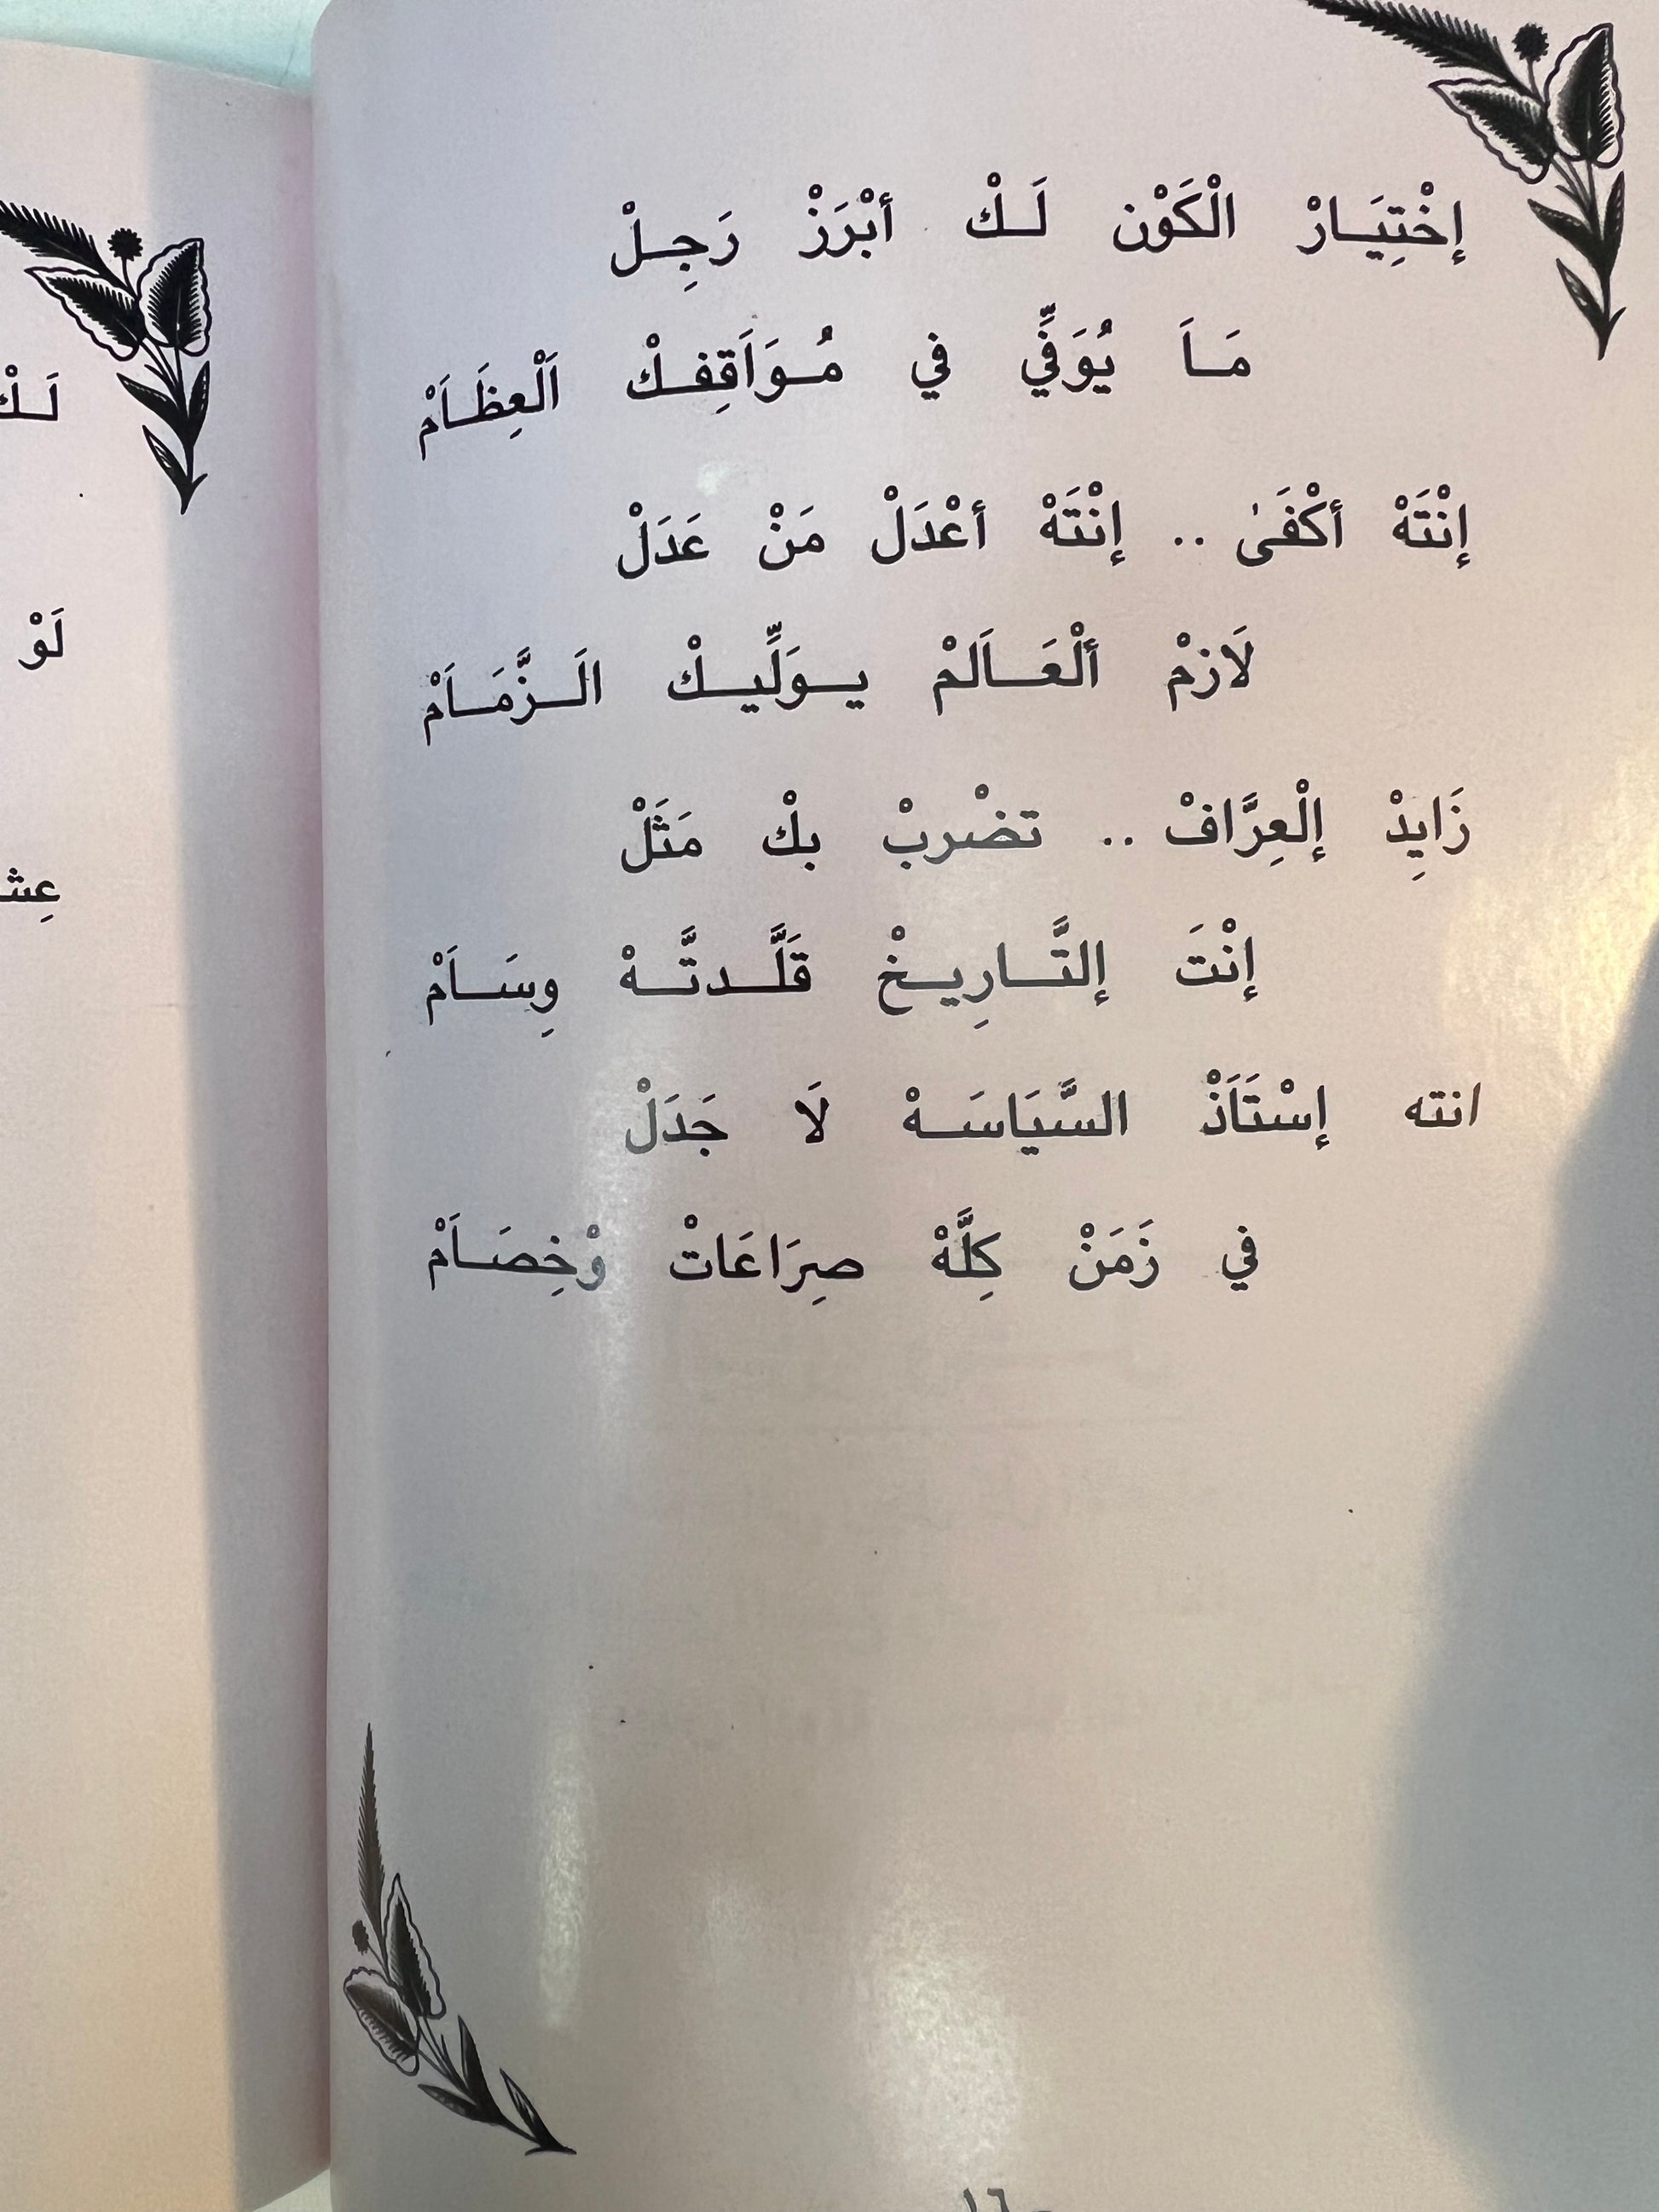 إخْتِيَارْ الْكَوْن لَكْ أبْرَزْ رَجِلْ
مَاَ يُوَفِّي في مُوَاَقِفكْ اَلْعِظَاَمْ
إنْتَهْ أكْفَىٰ .. إنْتَهْ أعْدَلْ مَنْ عَدَلْ
لَازمْ ألْعَاَلمْ يوَلِّيكْ الَزَّمَاَمْ
زَايِدْ إلْعِرَّافْ .. تضْربْ بكْ مَثَلْ
إنْتَ إلتَّارِيخْ قَلَّدتَّهْ وِسَاَمْ
انته إسْتَاَذْ السَّيَاسَهْ لَا جَدَلْ
في زَمَنْ كِلَّهْ صِرَاعَاتْ وْخِصَاَمْ
لَكْ
لَوْ